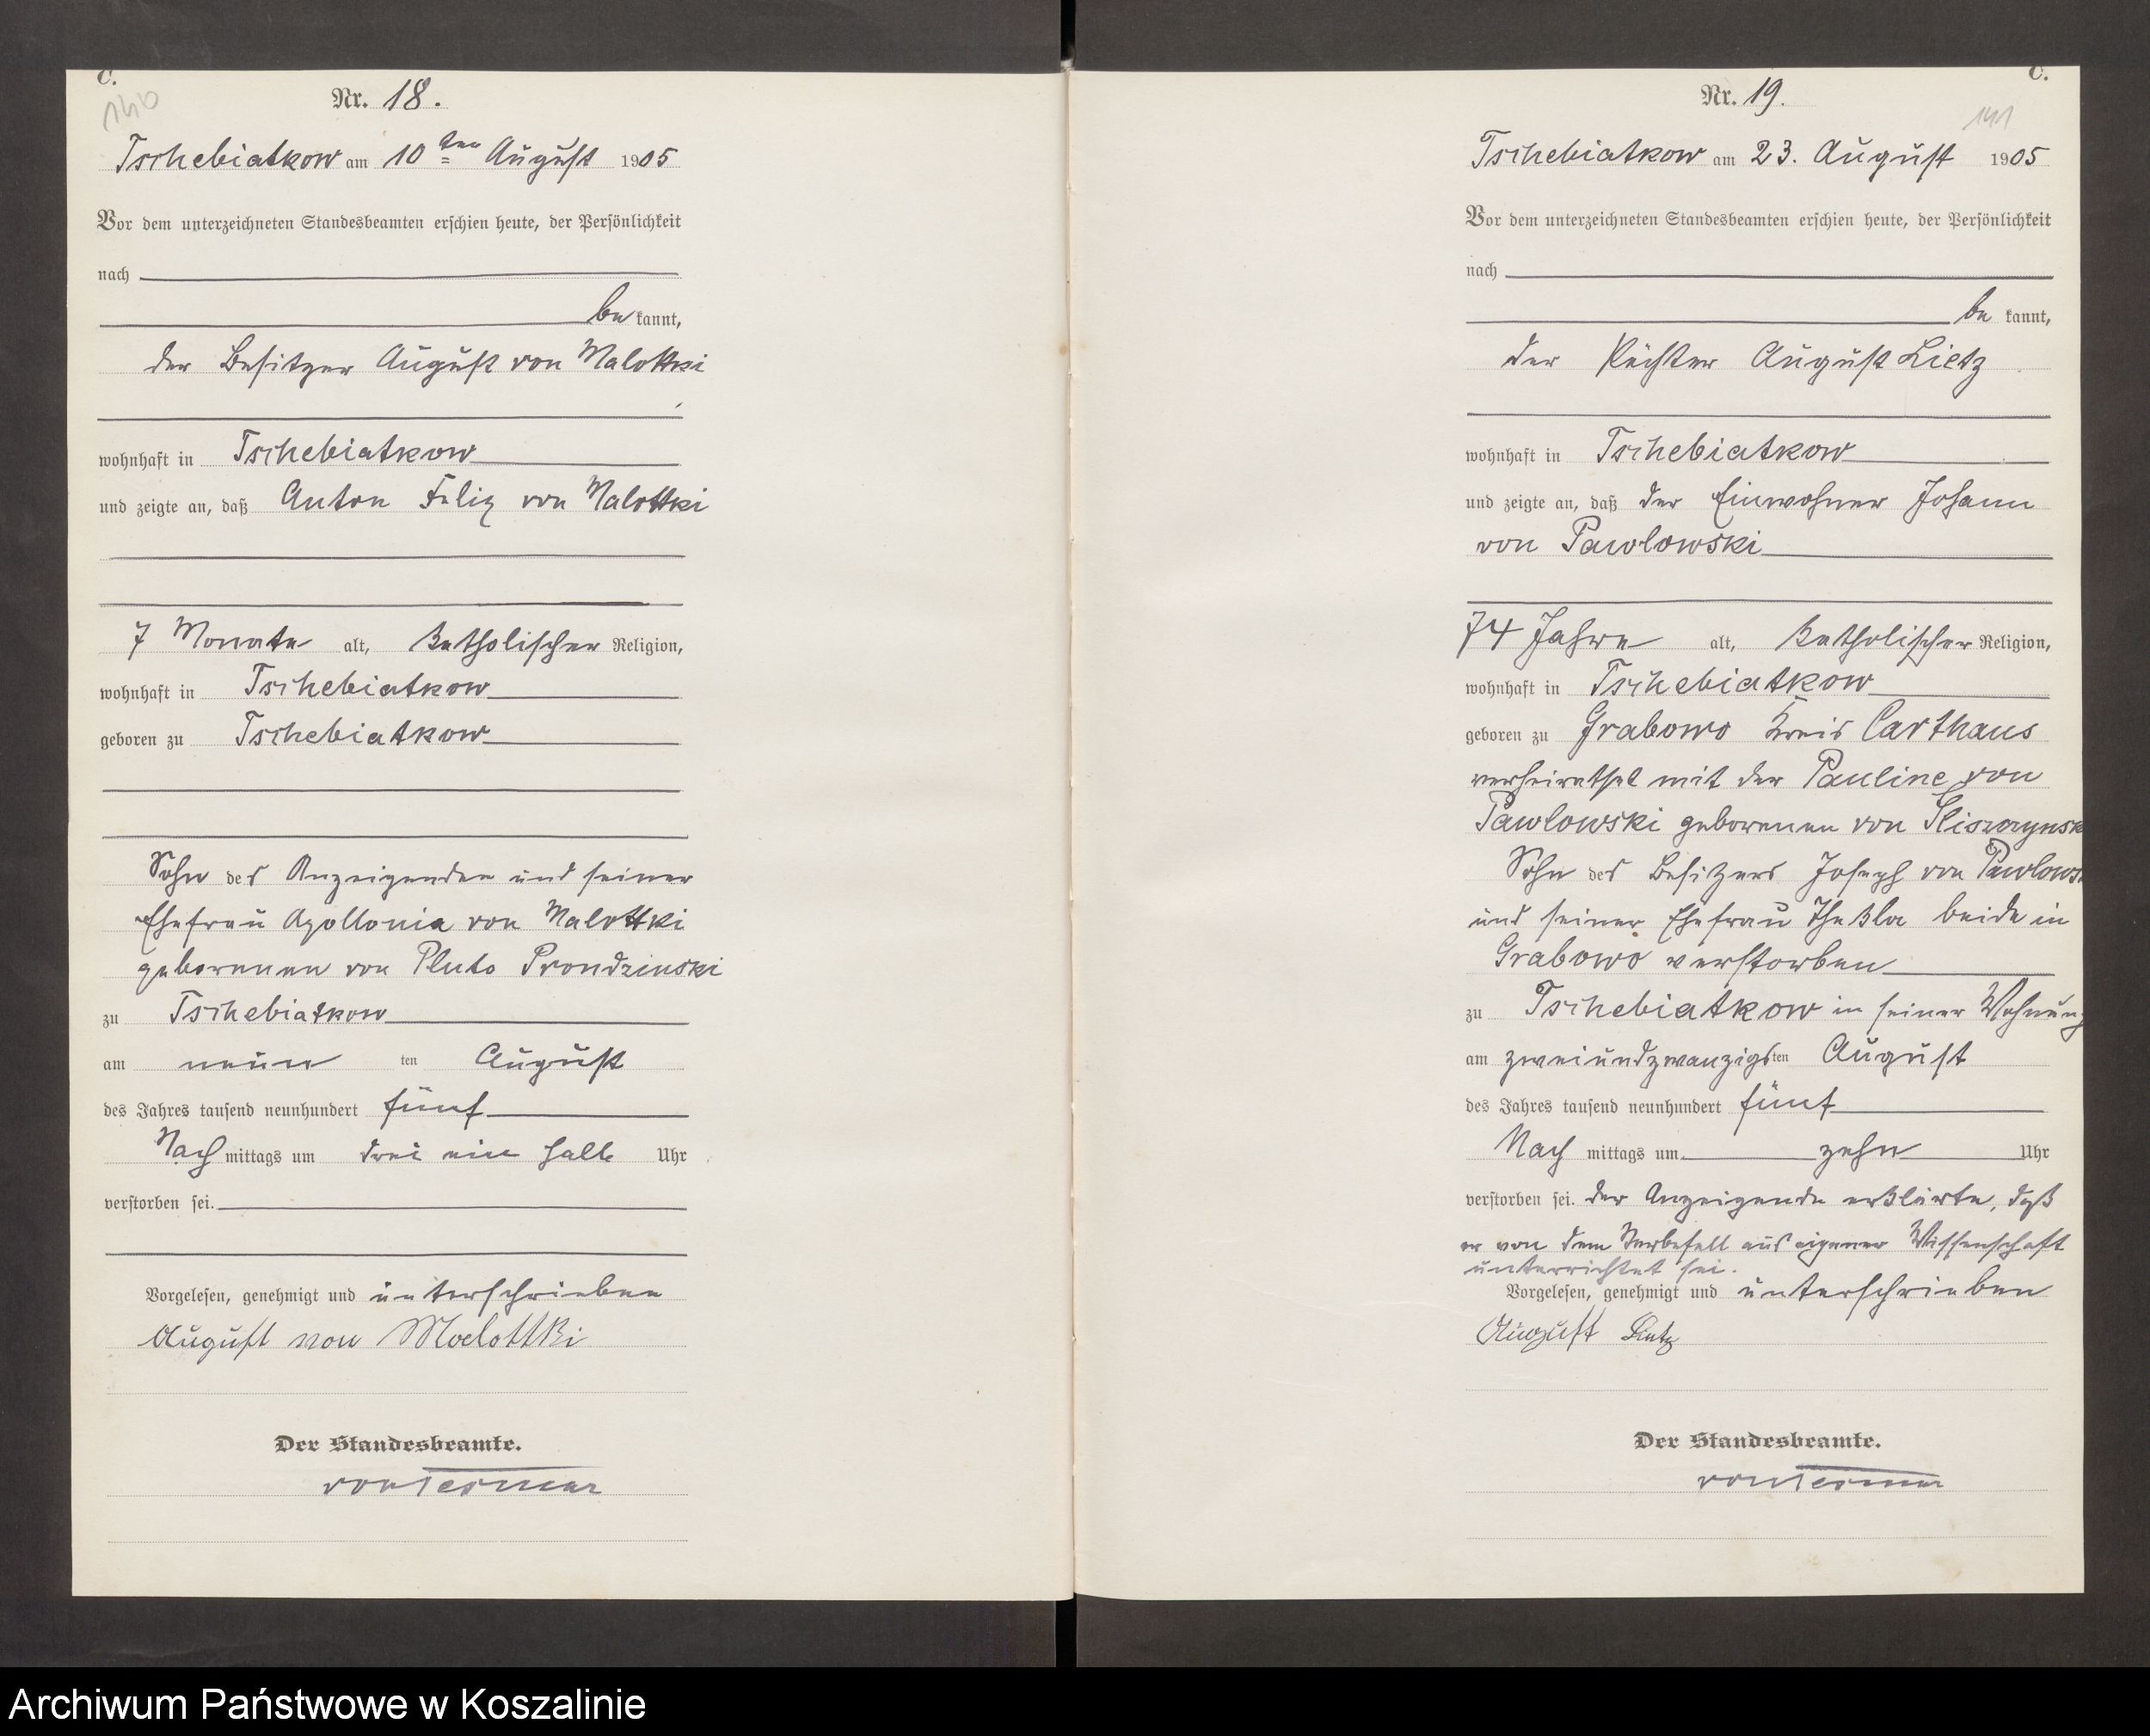 C.
140
Nr. 18.
Tschebiatkow am 10ten August 1905
Vor dem unterzeichneten Standesbeamten erschien heute, der Persönlichkeit
nach
be kannt,
der Besitzer August von Malottki
wohnhaft in Tschebiatkow
und zeigte an, daß Anton Felix von Malottki
7 Monate alt, katholischer Religion,
wohnhaft in Tschebiatkow
geboren zu Tschebiatkow
Sohn des Anzeigenden und seiner
Ehefrau Apollonia von Malottki
geborenen von Pluto Prondzinski
zu Tschebiatkow
am neun ten August
des Jahres tausend neunhundert fünf
Nach mittags um drei ein halb Uhr
verstorben sei.
Vorgelesen, genehmigt und unterschrieben
August von Malottki
Der Standesbeamte.
C.
141
Nr. 19.
Tschebiatkow am 23. August 1905
Vor dem unterzeichneten Standesbeamten erschien heute, der Persönlichkeit
nach
be kannt,
der Pächter August Lietz
wohnhaft in Tschebiatkow
und zeigte an, daß der Einwohner Johann
von Pawlowski
74 Jahre alt, katholischer Religion,
wohnhaft in Tschebiatkow
geboren zu Grabowo Kreis Carthaus
verheirathet mit der Pauline von
Pawlowski geborenen von
Sohn des Besitzers Joseph von Pawlows
und seiner Ehefrau Thekla beide in
Grabowo verstorben
zu Tschebiatkow in seiner Wohnung
am zweiundzwanzigsten August
des Jahres tausend neunhundert fünf
Nach mittags um zehn Uhr
verstorben sei. der Anzeigende erklärte, daß
er von dem Sterbefall aus eigener Wissenschaft
unterrichtet sei.
Vorgelesen, genehmigt und unterschrieben
August Lietz
Der Standesbeamte.
Archiwum Państwowe w Koszalinie